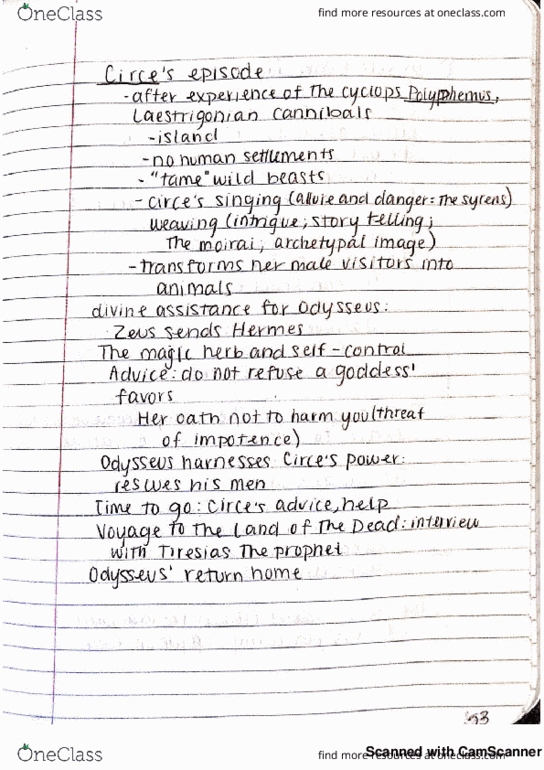 OneClass
find more resources at oneclass.com
Circe's episode
-after experience of the cyclops Polyphemus,
Laestrigonian Cannibals
-island
-no human settlements
-"tame" wild beasts
-circe's singing (allure and danger=the syrens)
weaving (intrigue; story telling;
The moirai; archetypal image)
-transforms her male visitors into
animals
divine assistance for Odysseus:
Zeus sends Hermes
The magic herb and self-control
Advice: do not refuse a goddess'
favors
Her oath not to harm you (threat
of impotence)
Odysseus harnesses Circe's power:
rescues his men
Time to go: Circe's advice, help
Voyage to The Land of The Dead: interview
with Tiresias The prophet
Odysseus' return home
OneClass
find more resources at oneclass.com
Scanned with CamScanner